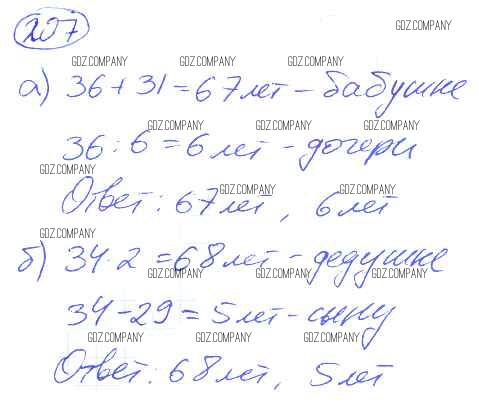 207
GDZ.COMPANY
GDZ.COMPANY GDZ.COMPANY GDZ.COMPANY
а) 36 + 31 = 67 лет – бабушке
GDZ.COMPANY GDZ.COMPANY GDZ.COMPANY
36 : 6 = 6 лет – дочери
GDZ.COMPANY
GDZ.COMPANY GDZ.COMPANY
Ответ: 67 лет, 6 лет
GDZ.COMPANY
б) 34 · 2 = 68 лет – дедушке
GDZ.COMPANY GDZ.COMPANY GDZ.COMPANY
34 – 29 = 5 лет – сыну
GDZ.COMPANY GDZ.COMPANY GDZ.COMPANY
Ответ: 68 лет, 5 лет